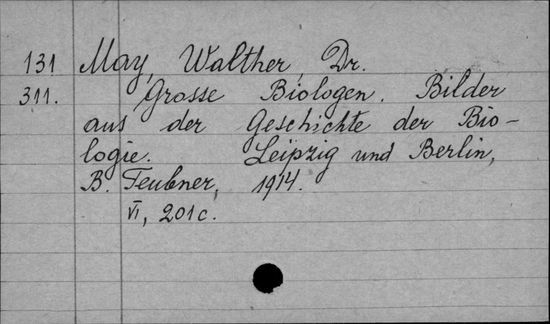 131 May, Walther, Dr.
311. Grosse Biologen. Bilder
aus der Geschichte der Bio-
logie. Leipzig und Berlin,
B. Teubner, 1914.
VI, 201 c.